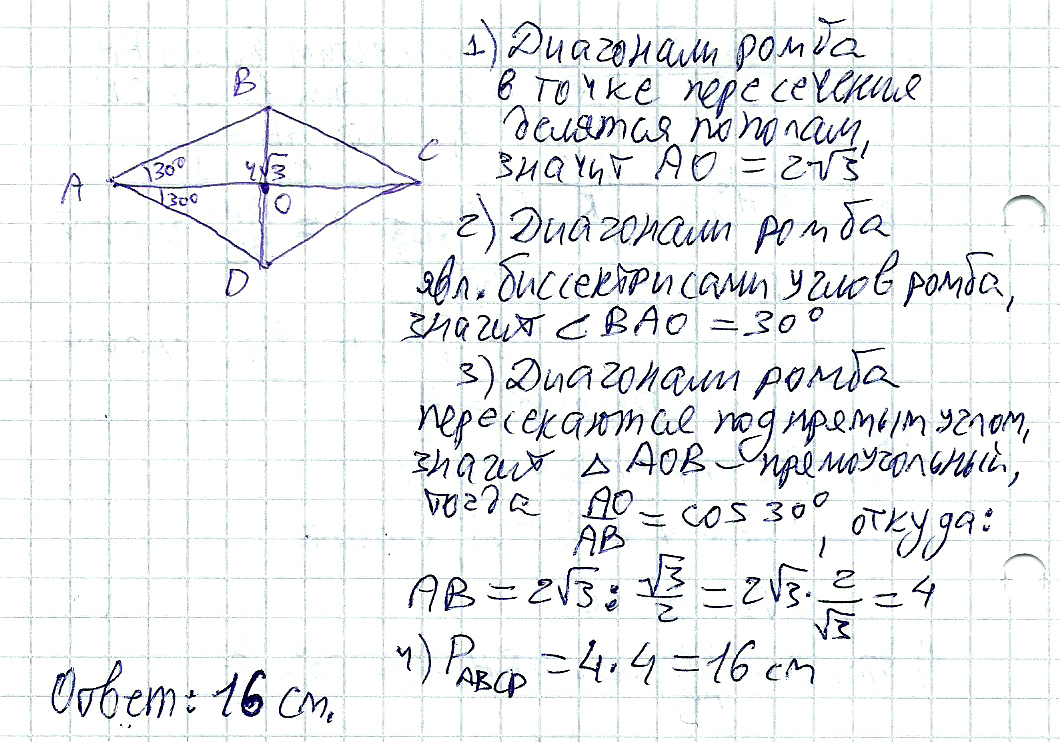 1) Диагонали ромба
в точке пересечения
делятся пополам,
значит AO = 2√3
2) Диагонали ромба
явл. биссектрисами углов ромба,
значит ∠BAO = 30°
3) Диагонали ромба
пересекаются под прямым углом,
значит △ AOB – прямоугольный,
тогда AO/AB = cos 30°, откуда:
AB = 2√3 : √3/2 = 2√3 · 2/√3 = 4
4) P ABCD = 4 · 4 = 16 см
Ответ: 16 см.
B
A
30°
30°
4√3
O
C
D